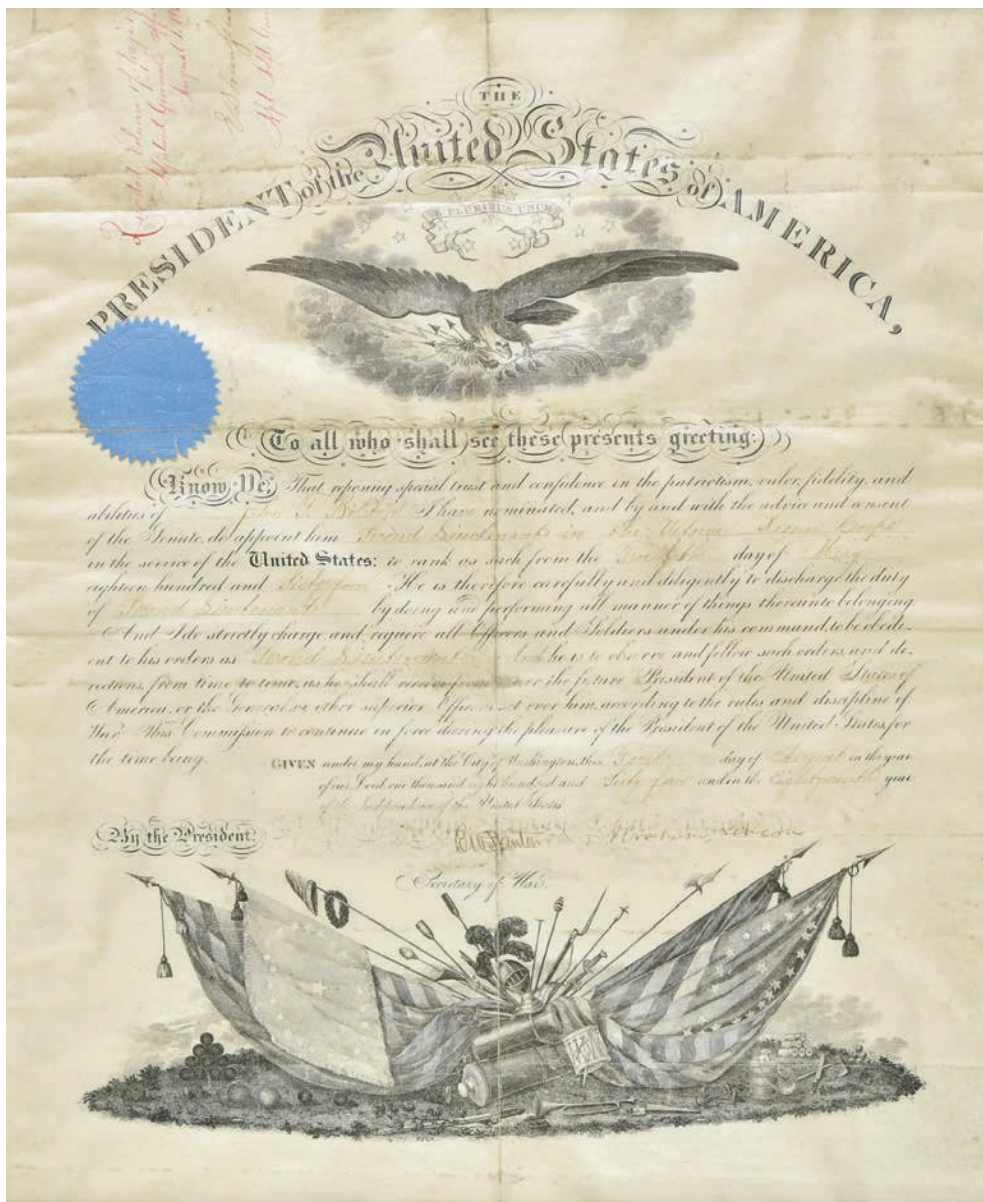 THE
PRESIDENT of the United States of AMERICA,
E PLURIBUS UNUM
To all who shall see these presents greeting:
Know Ye, That reposing special trust and confidence in the patriotism, valor, fidelity, and
abilities of I have nominated, and by and with the advice and consent
of the Senate, do appoint him Second Lieutenant in the Veteran Reserve Corps
in the service of the United States: to rank as such from the day of May
eighteen hundred and Sixty four He is therefore carefully and diligently to discharge the duty
of Second Lieutenant by doing and performing all manner of things thereunto belonging.
And I do strictly charge, and require all Officers and Soldiers under his command, to be obedi-
ent to his orders as Second Lieutenant And he is to observe and follow such orders, and di-
rections, from time to time, as he shall receive from me, or the future President of the United States of
America, or the General or other superior Officers set over him, according to the rules and discipline of
War. This Commission to continue in force during the pleasure of the President of the United States, for
the time being.
GIVEN under my hand, at the City of Washington, this day of August in the year
of our Lord one thousand eight hundred and Sixty four and in the Eighty ninth year
of the Independence of the United States
By the President,
Edwin M Stanton Abraham Lincoln
Secretary of War.